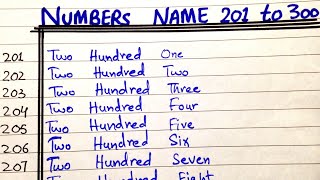 NUMBERS NAME 201 to 300
201 Two Hundred One
202 Two Hundred Two
203 Two Hundred Three
204 Two Hundred Four
205 Two Hundred Five
206 Two Hundred Six
207 Two Hundred Seven
Two Hundred Eight